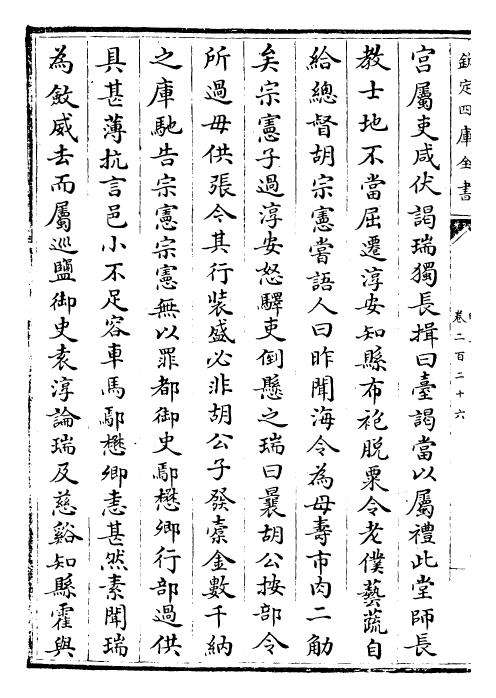 欽定四庫全書
卷二百二十六
宮屬吏咸伏謁瑞獨長揖曰臺謁當以屬禮此堂師長
教士地不當屈遷淳安知縣布袍脫粟令老僕藝蔬自
給總督胡宗憲嘗語人曰昨聞海令為母壽市肉二觔
矣宗憲子過淳安怒驛吏倒懸之瑞曰曩胡公按部令
所過毋供張令其行裝盛必非胡公子發橐金數千納
之庫馳告宗憲宗憲無以罪都御史鄢懋卿行部過供
具甚薄抗言邑小不足容車馬鄢懋卿恚甚然素聞瑞
為斂威去而屬巡鹽御史袁淳論瑞及慈谿知縣霍與